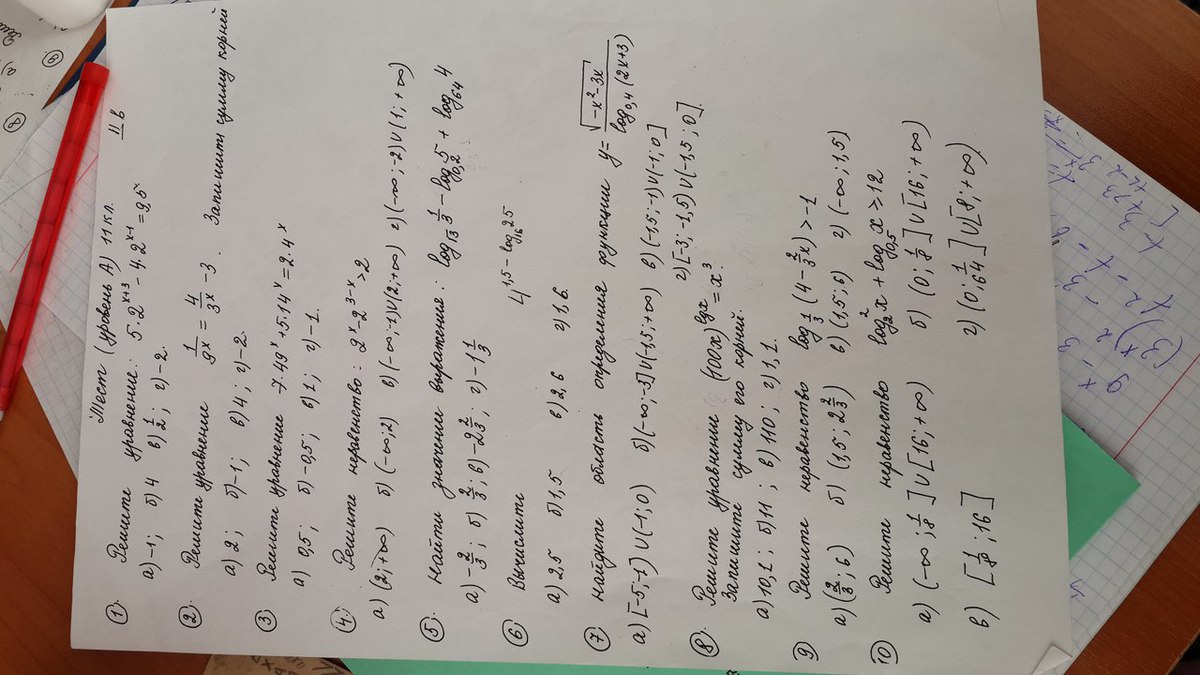 Тест (уровень А) 11 кл. 11 в
① Решите уравнение: 5·2^(x+3) − 4·2^(x−1) = 9,5
а) −1; б) 4 в) 1/2; г) −2.
② Решите уравнение 1/9^x = 4/3^x − 3. Запишите сумму корней
а) 2; б) −1; в) 4; г) −2.
③ Решите уравнение 7·49^x + 5·14^x = 2·4^x
а) 0,5; б) −0,5; в) 1; г) −1.
④ Решите неравенство: 2^x − 2^(3−x) > 2
а) (2; +∞) б) (−∞; 2) в) (−∞; −1)∪(2; +∞) г) (−∞; −2)∪(1; +∞)
⑤ Найти значение выражения: log_√3 1/3 − log_0,2 5 + log_64 4
а) −2/3; б) 2/3; в) −2 2/3; г) −1 1/3
⑥ Вычислить 4^(1,5 − log_16 25)
а) 2,5 б) 1,5 в) 2,6 г) 1,6.
⑦ Найдите область определения функции y = √(−x²−3x) / log_0,4 (2x+3)
а) [−5; −1)∪(−1; 0) б) (−∞; −5)∪(−1,5; +∞) в) (−1,5; −1)∪(−1; 0]
г) [−3; −1,5)∪(−1,5; 0].
⑧ Решите уравнение (100x)^(lg x) = x³
Запишите сумму его корней.
а) 10,1; б) 11; в) 110; г) 1,1.
9 Решите неравенство log_1/3 (4 − 2/3 x) > −1
а) (2/3; 6) б) (1,5; 2 2/3) в) (1,5; 6) г) (−∞; 1,5)
10 Решите неравенство log²_2 x + log_0,5 x ≥ 12
а) (−∞; 1/8]∪[16; +∞) б) (0; 1/8]∪[16; +∞)
в) [1/8; 16] г) (0; 1/64]∪[8; +∞)